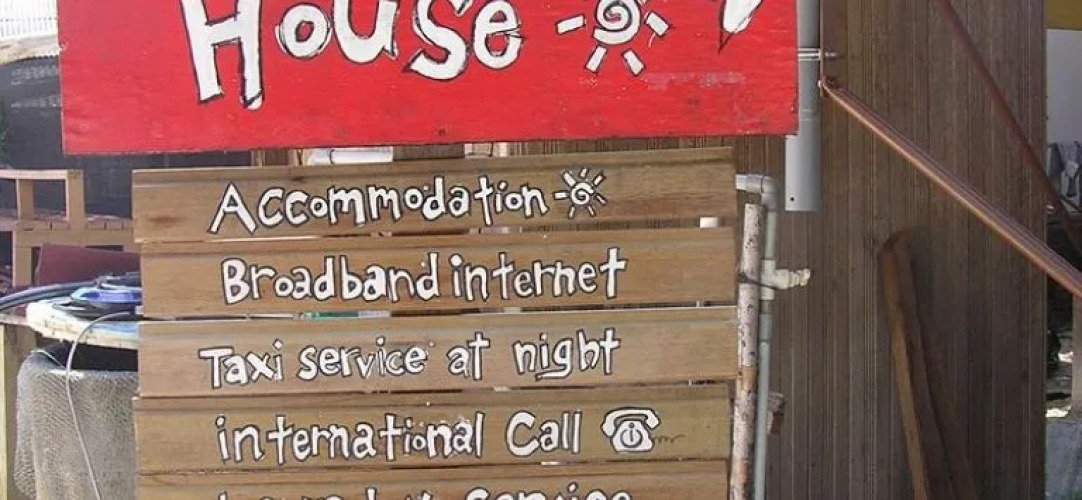 House
Accommodation
Broadband internet
Taxi service at night
international Call
service